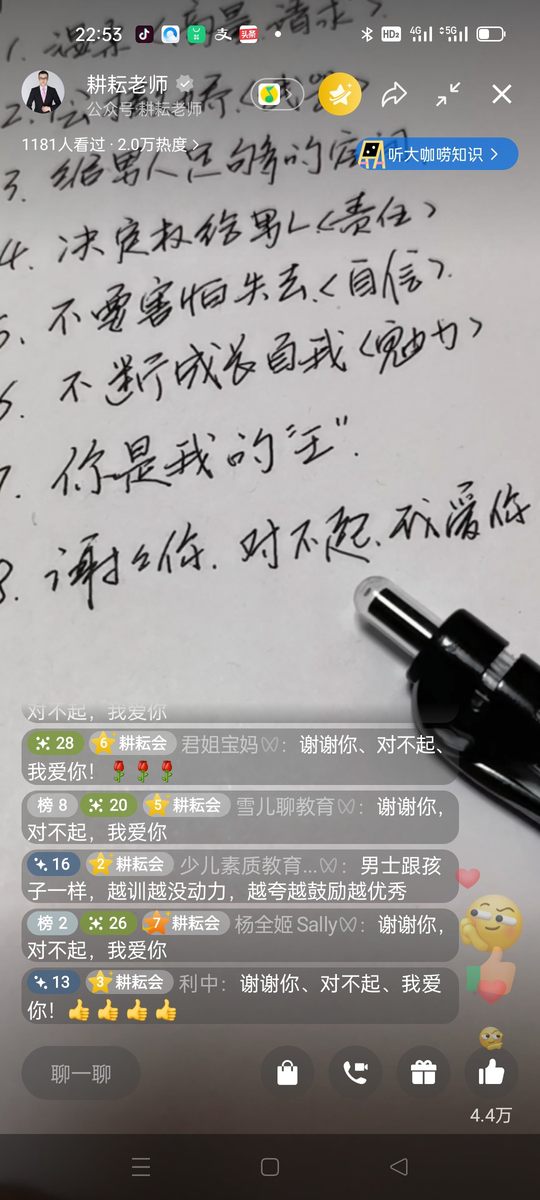 22:53
头条
HD2
4G
5G
1. 温柔
请求>.
耕耘老师
公众号·耕耘老师
2.
1181人看过 · 2.0万热度 >
听大咖唠知识 >
3. 给男人足够多的空间
4. 决定权给男人<责任>
5. 不要害怕失去.<自信>.
6. 不断成长自我<魅力>
7. 你是我的"王".
8. 谢谢你. 对不起. 我爱你
对不起，我爱你
28 6 耕耘会 君姐宝妈：谢谢你、对不起、
我爱你！🌹🌹🌹
榜 8 20 5 耕耘会 雪儿聊教育：谢谢你，
对不起，我爱你
16 2 耕耘会 少儿素质教育...：男士跟孩
子一样，越训越没动力，越夸越鼓励越优秀
榜 2 26 7 耕耘会 杨全姬 Sally：谢谢你，
对不起，我爱你
13 3 耕耘会 利中：谢谢你、对不起、我爱
你！👍👍👍👍
聊一聊
4.4万